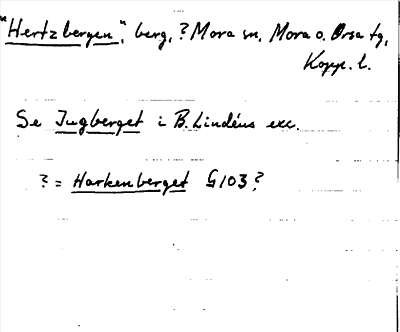 "Hertzbergen", berg, ? Mora sn, Mora o. Orsa tg,
Kopp. l.
Se Jugberget i B. Lindéns exc.
? = Harkenberget G103?